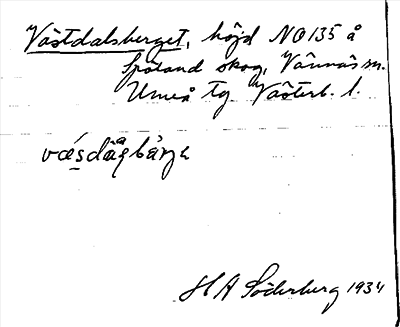 Västdalsberget, höjd NO 135 å
Spöland skog, Vännäs sn.
Umeå tg Västerb. l.
H A Söderberg 1934